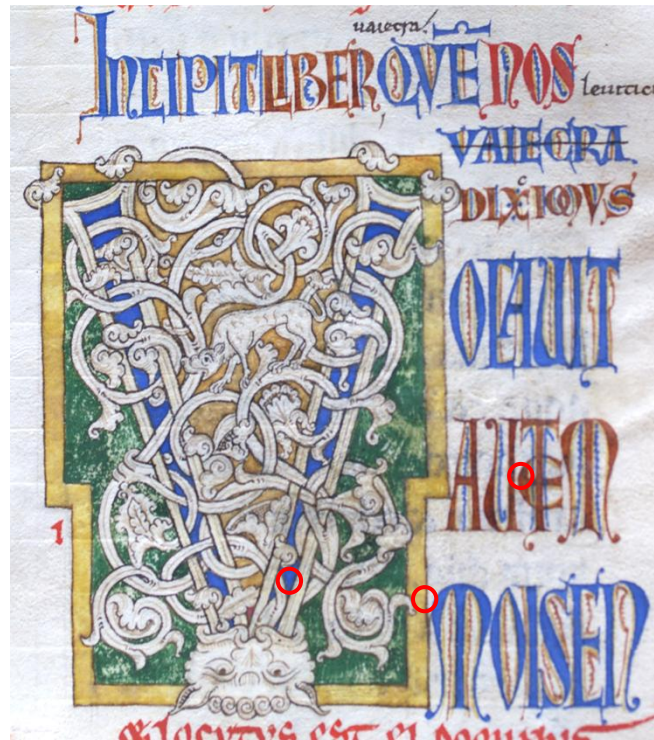 uaiecra
INCIPIT LIBER QVĒ NOS
leuitic
VAIECRA
DIXIMVS
VOCAUIT
AUTEM
MOISEN
& locutus est ei dominus